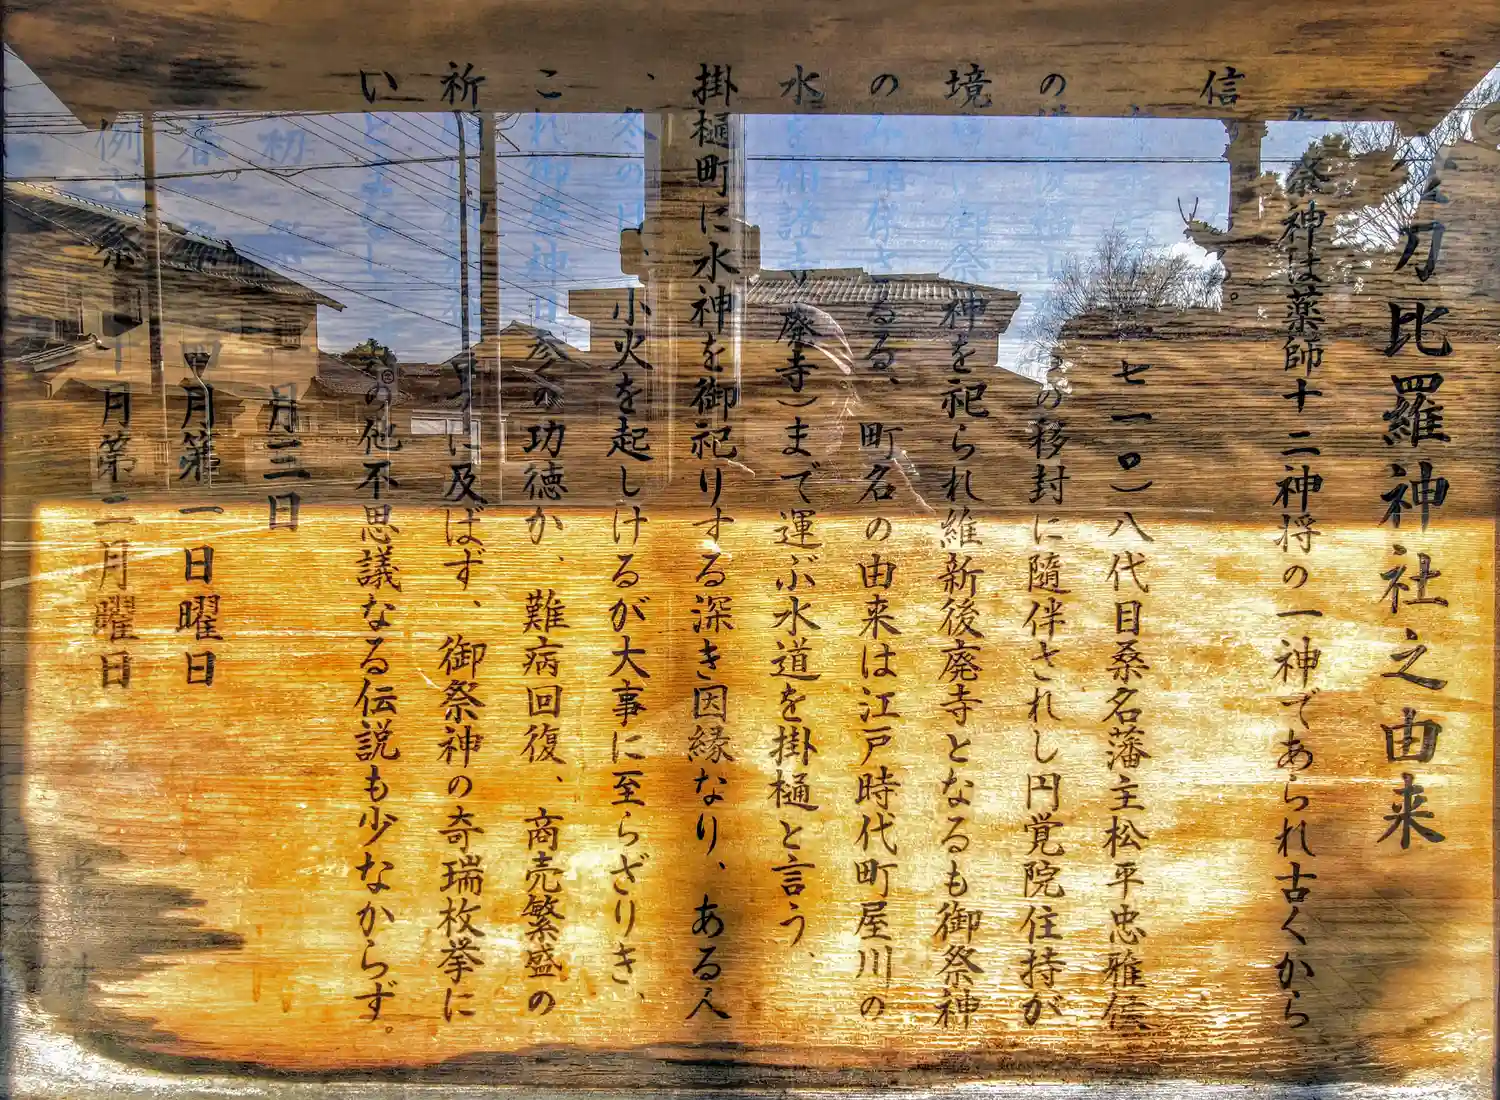 刀比羅神社之由来
祭神は薬師十二神将の一神であられ古くから
信
七一〇)八代目桑名藩主松平忠雅侯
の移封に随伴されし円覚院住持が
境 御祭神を祀られ維新後廃寺となるも御祭神
の 存さるる、町名の由来は江戸時代町屋川の
水を 廃寺)まで運ぶ水道を掛樋と言う、
掛樋町に水神を御祀りする深き因縁なり、ある人
、冬の日、小火を起しけるが大事に至らざりき、
これ御祭神日参の功徳か、難病回復、商売繁盛の
祈 に及ばず、御祭神の奇瑞枚挙に
いとまなし その他不思議なる伝説も少なからず。
初祭 一月三日
春祭 四月第一日曜日
例大祭 十月第二月曜日